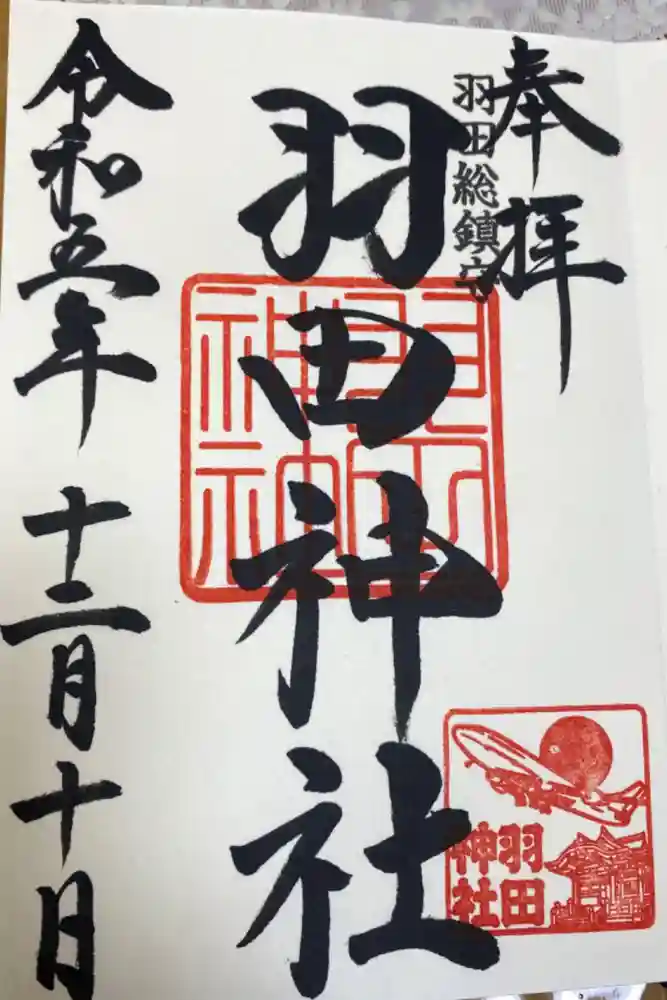 奉拝
羽田総鎮守
羽田神社
令和五年十二月十日
羽田
神社